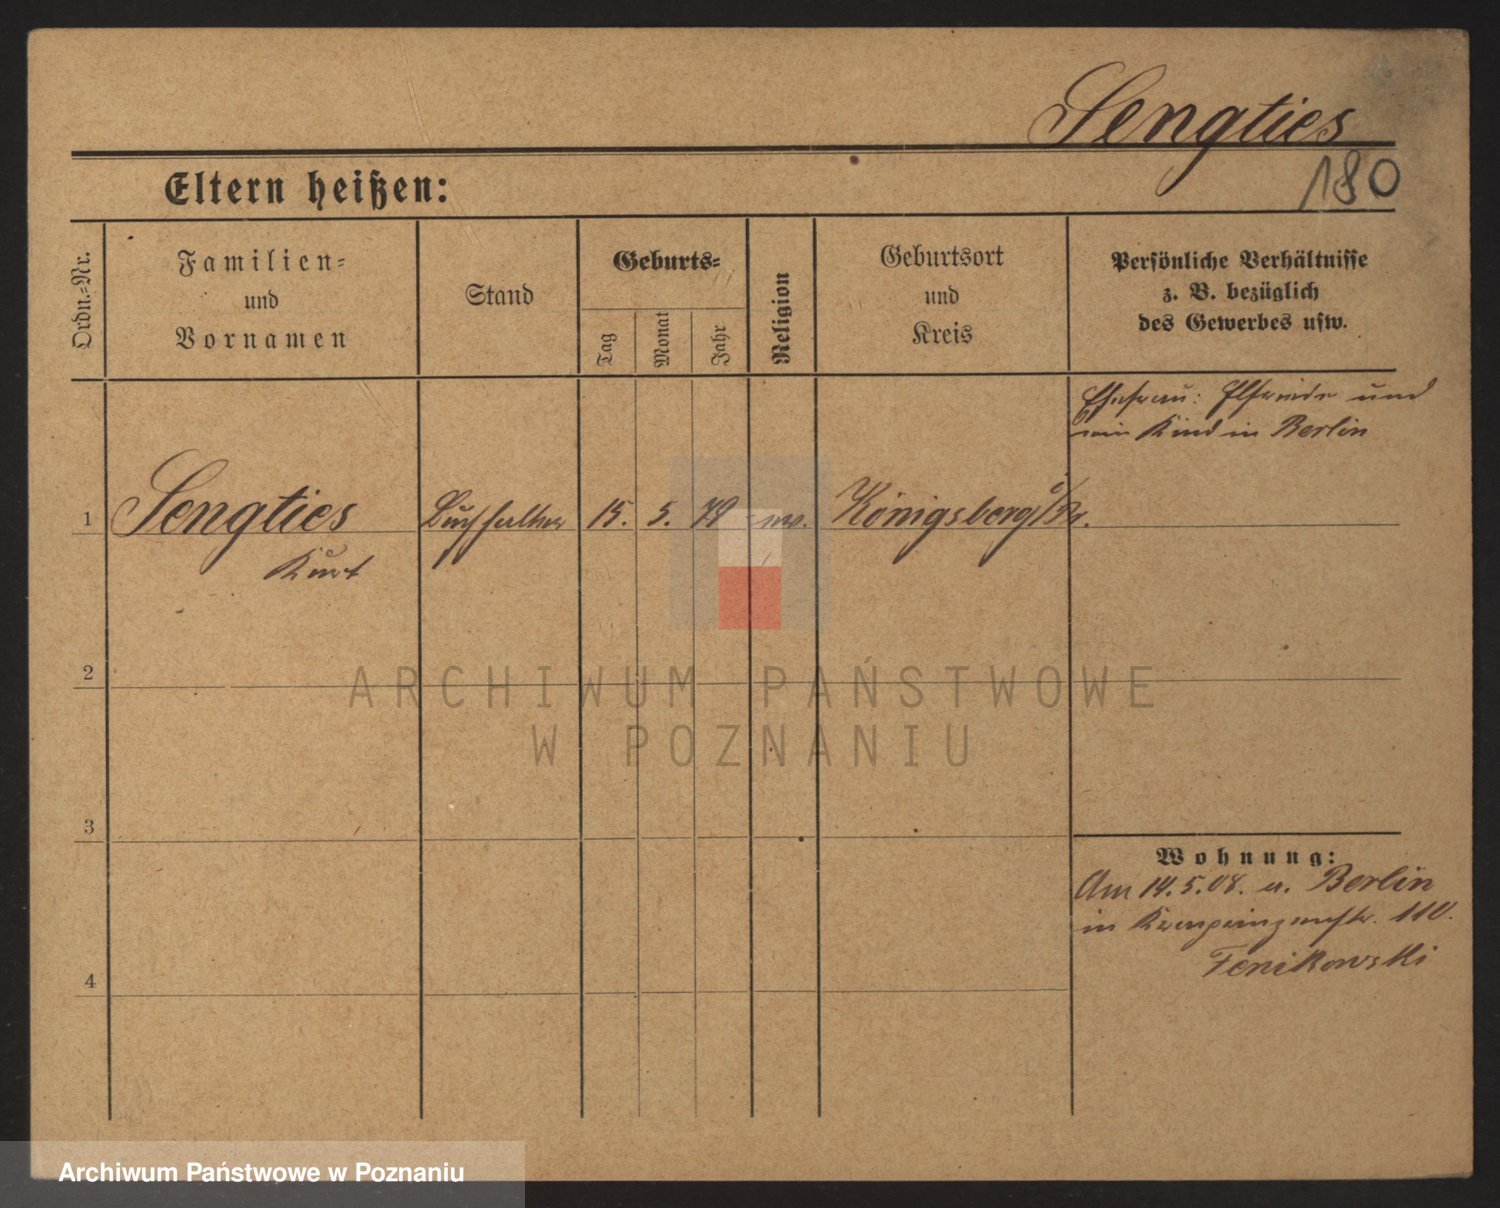 Sengties
180
Eltern heißen:
Ordn.-Nr.
Familien-
und
Vornamen
Stand
Geburts-
Tag
Monat
Jahr
Religion
Geburtsort
und
Kreis
Persönliche Verhältnisse
z. B. bezüglich
des Gewerbes usw.
Ehefrau: Elfriede und
ein Kind in Berlin
1
Sengties
Kurt
Buchhalter
15.
5.
79
ev.
Königsberg i/Pr.
2
3
4
Wohnung:
Am 14.5.08. a. Berlin
in Kronprinzenstr. 110.
Fenikowski
ARCHIWUM PAŃSTWOWE
W POZNANIU
Archiwum Państwowe w Poznaniu